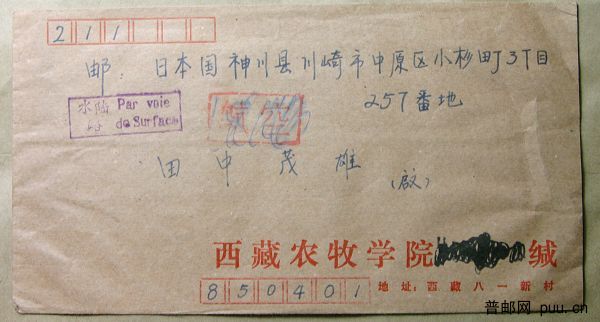 211
邮: 日本国神川县川崎市中原区小杉町3丁目
257番地
水陆 Par voie
路 de Surface
田中茂雄 (启)
西藏农牧学院 缄
850401 地址:西藏八一新村
普邮网 puu.cn